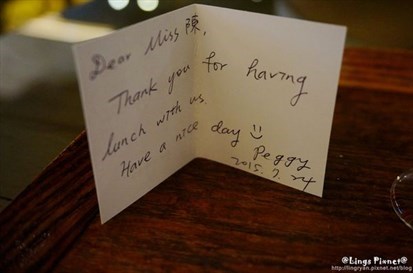 Dear Miss 陳,
Thank you for having
lunch with us.
Have a nice day
Peggy
2015. 7. 24
@Lings Pixnet@
http://lingryan.pixnet.net/blog